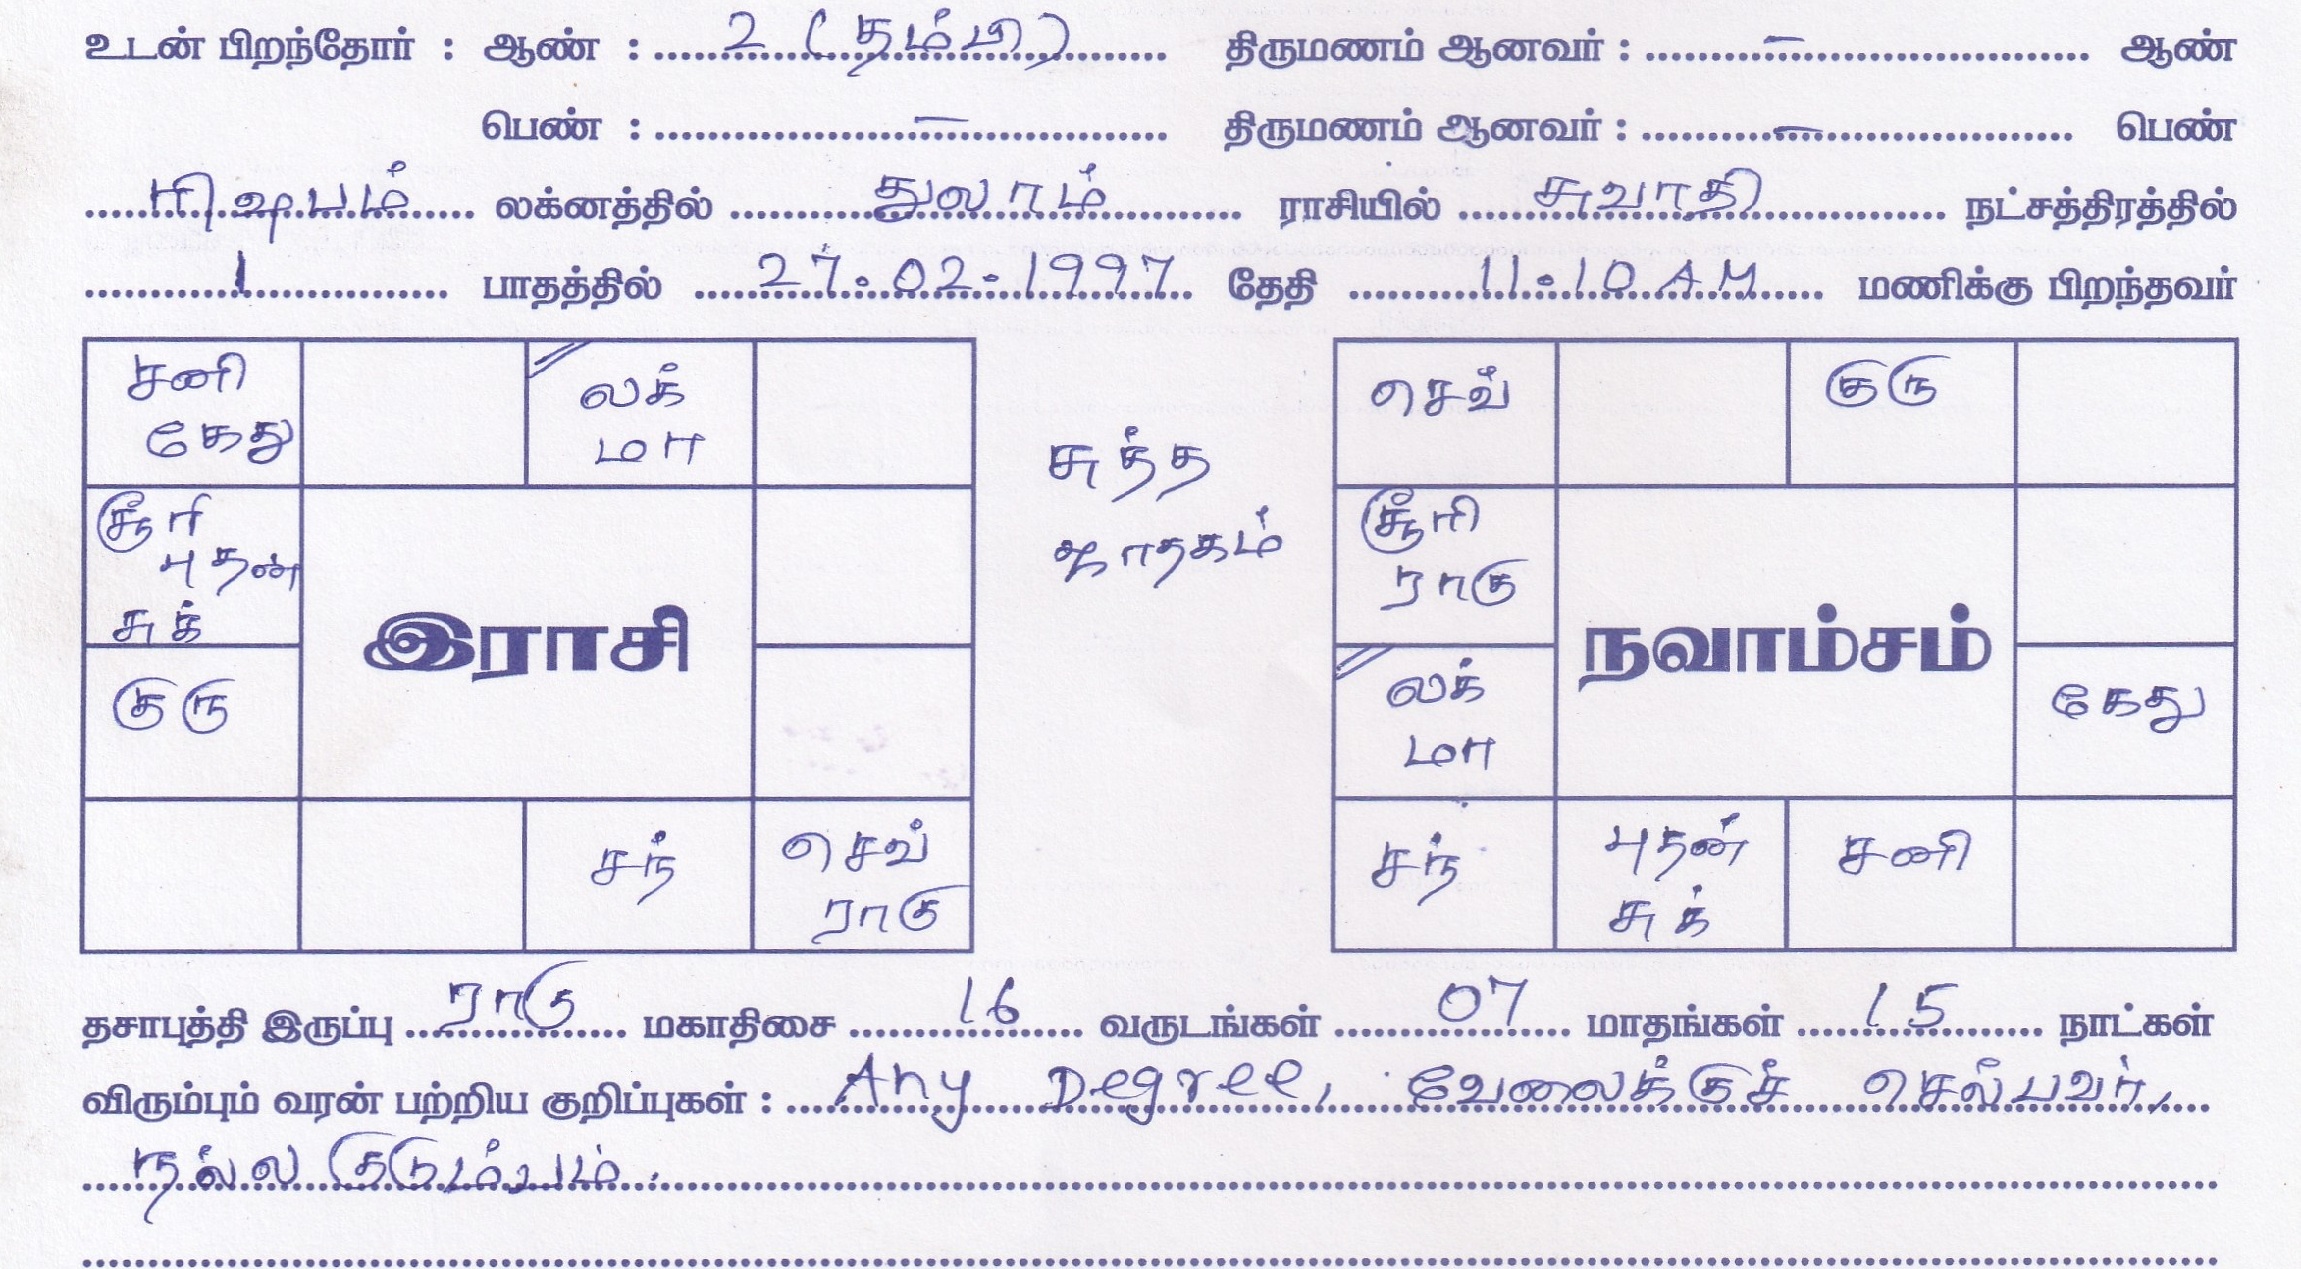 உடன் பிறந்தோர் : ஆண் : 2 (தம்பி) திருமணம் ஆனவர் : – ஆண்
பெண் : – திருமணம் ஆனவர் : – பெண்
ரிஷபம் லக்னத்தில் துலாம் ராசியில் சுவாதி நட்சத்திரத்தில்
1 பாதத்தில் 27.02.1997 தேதி 11.10 AM மணிக்கு பிறந்தவர்
சனி
கேது
லக்
மா
சூரி
புதன்
சுக்
இராசி
குரு
சந்
செவ்
ராகு
சுத்த
ஜாதகம்
செவ்
குரு
சூரி
ராகு
நவாம்சம்
லக்
மா
கேது
சந்
புதன்
சுக்
சனி
தசாபுத்தி இருப்பு ராகு மகாதிசை 16 வருடங்கள் 07 மாதங்கள் 15 நாட்கள்
விரும்பும் வரன் பற்றிய குறிப்புகள் : Any Degree, வேலைக்குச் செல்பவர்,
நல்ல குடும்பம்.